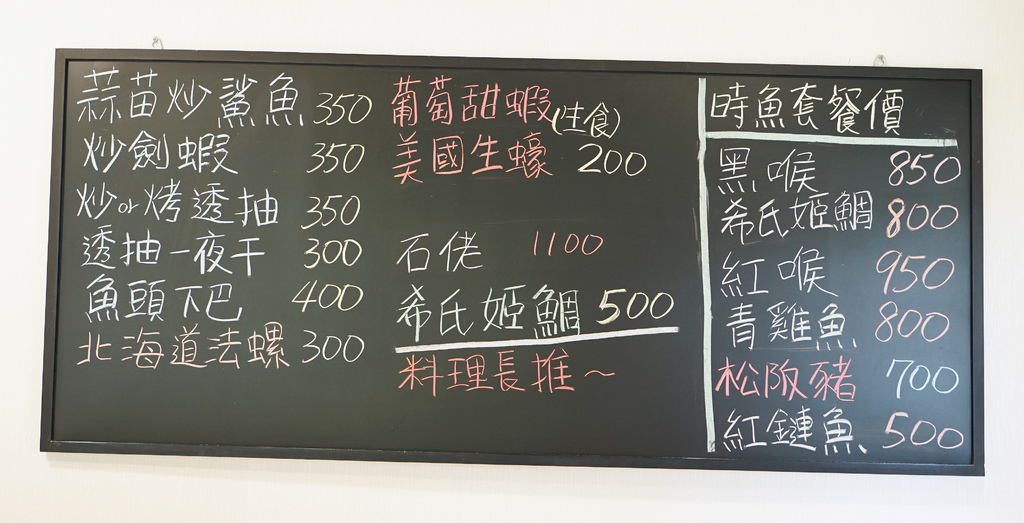 蒜苗炒鯊魚 350
炒劍蝦 350
炒or烤透抽 350
透抽一夜干 300
魚頭下巴 400
北海道法螺 300
葡萄甜蝦(生食)
美國生蠔 200
石佬 1100
希氏姬鯛 500
料理長推～
時魚套餐價
黑喉 850
希氏姬鯛 800
紅喉 950
青雞魚 800
松阪豬 700
紅鏈魚 500